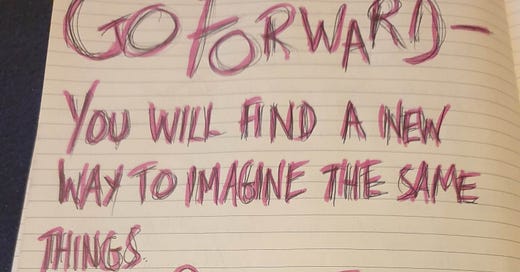 GO FORWARD—
YOU WILL FIND A NEW
WAY TO IMAGINE THE SAME
THINGS.